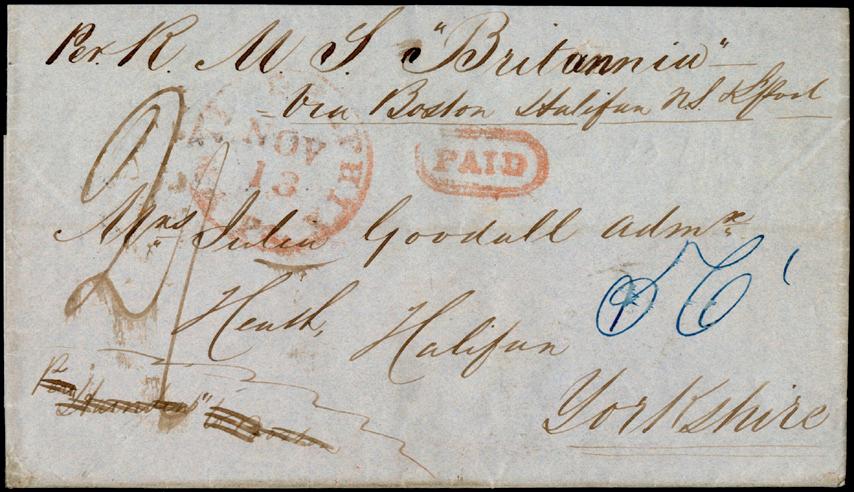 Per. R. M S "Britannia"
Via Boston Halifax NS & L'pool
NOV
13
PAID
2/
Mrs Julia Goodall admx
Heath, Halifax
Yorkshire
Per "Harnden" Boston